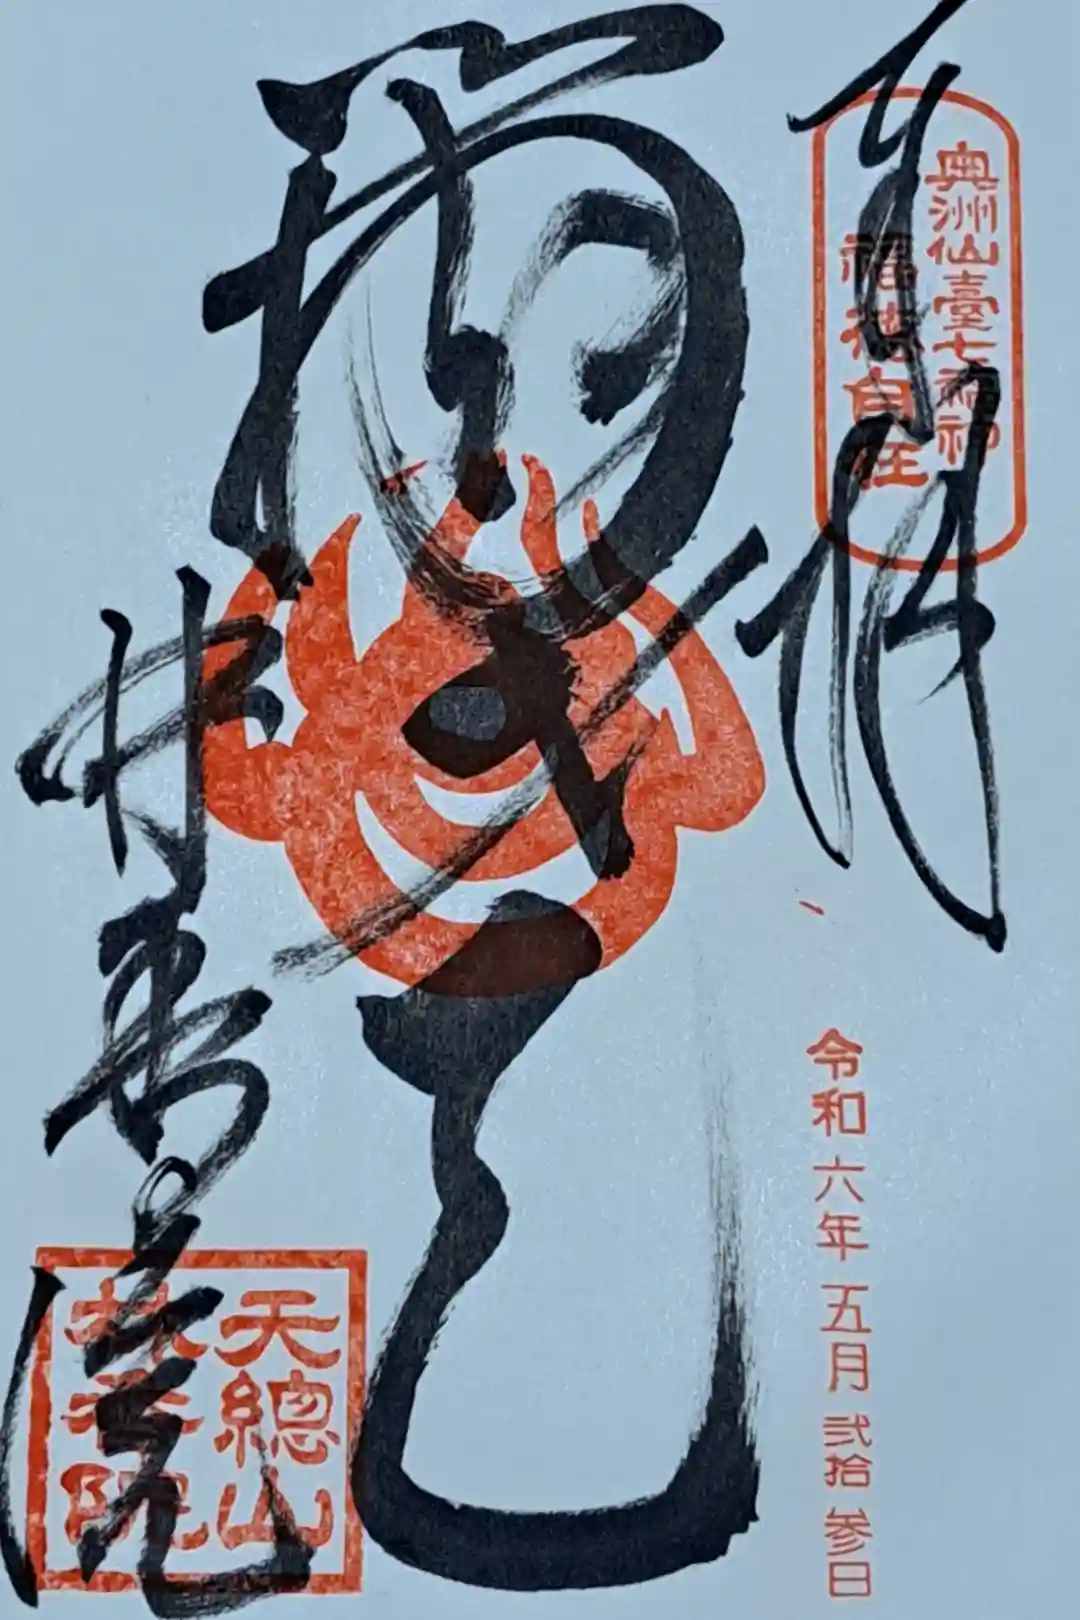 奉拝
奥洲仙臺七福神
福徳自在
令和六年五月弐拾参日
林香院
天總山
林香院